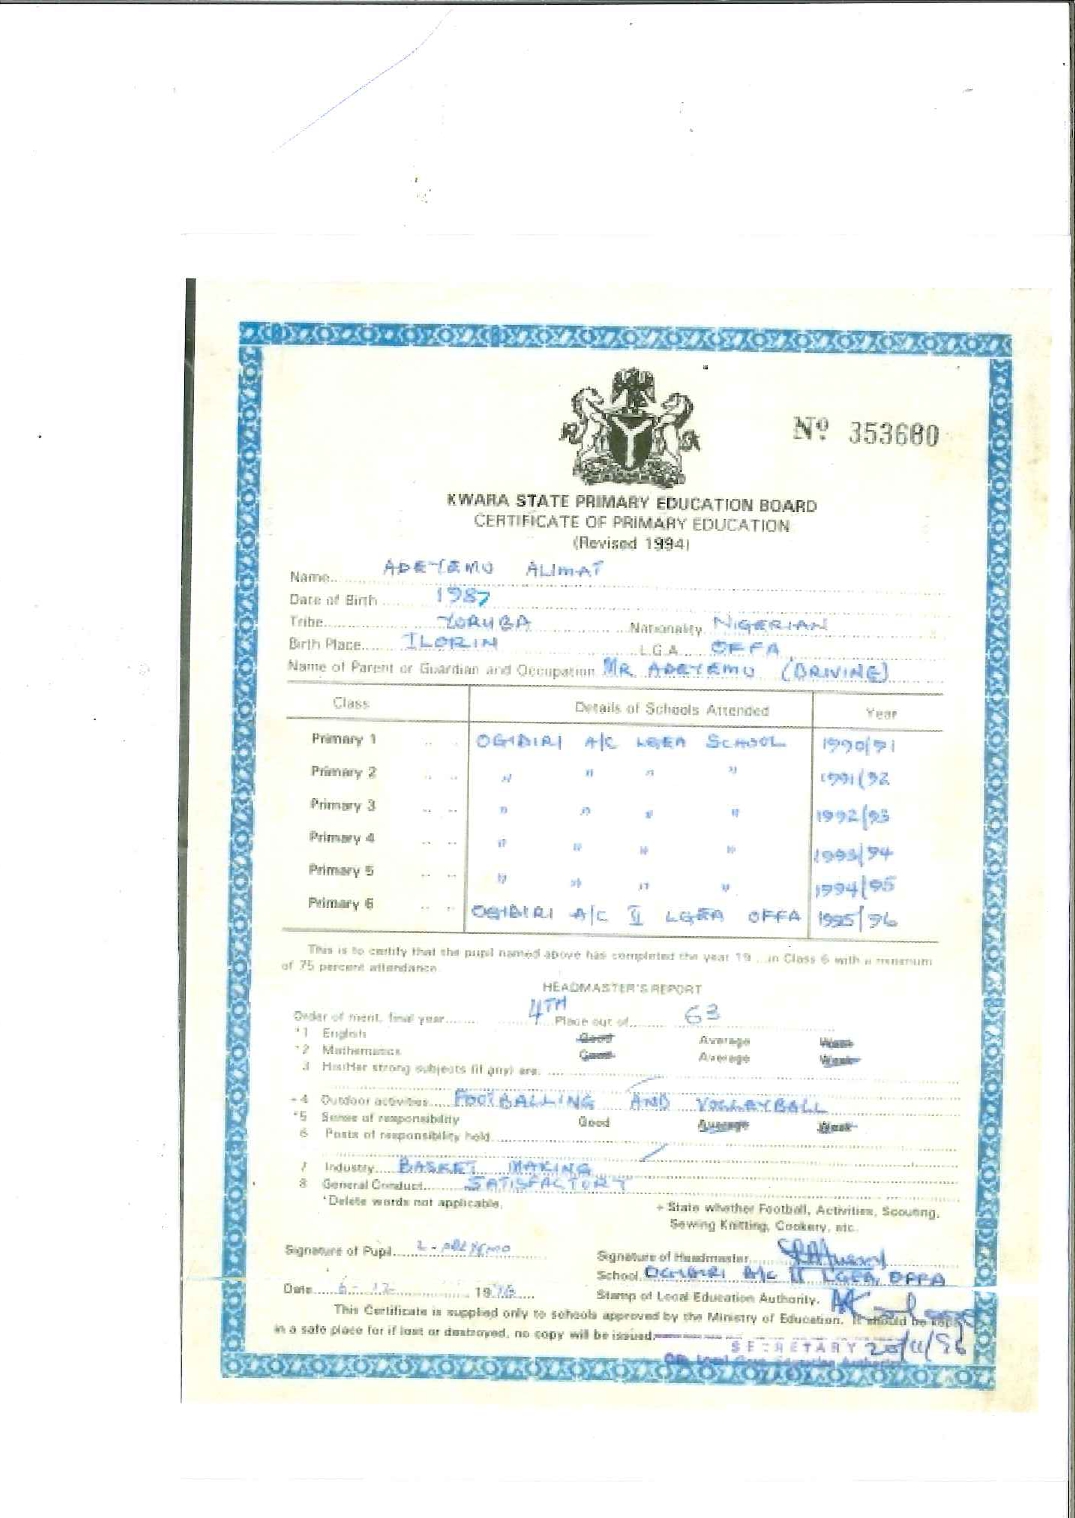 Nº 353680
KWARA STATE PRIMARY EDUCATION BOARD
CERTIFICATE OF PRIMARY EDUCATION
(Revised 1994)
Name ADEYEMO ALIMAT
Date of Birth 1987
Tribe YORUBA Nationality NIGERIAN
Birth Place ILORIN L.G.A. OFFA
Name of Parent or Guardian and Occupation MR. ADEYEMO (DRIVING)
Class Details of Schools Attended Year
Primary 1 OGIDIRI A/C LGEA SCHOOL 1990/91
Primary 2 " " " " 1991/92
Primary 3 " " " " 1992/93
Primary 4 " " " " 1993/94
Primary 5 " " " " 1994/95
Primary 6 OGIDIRI A/C II LGEA OFFA 1995/96
This is to certify that the pupil named above has completed the year 19... in Class 6 with a minimum
of 75 percent attendance
HEADMASTER'S REPORT
Order of merit, final year 4TH Place out of 63
*1 English Good Average Weak
*2 Mathematics Good Average Weak
3 His/Her strong subjects (if any) are:
+4 Outdoor activities FOOTBALLING AND VOLLEYBALL
*5 Sense of responsibility Good Average Weak
6 Posts of responsibility held
7 Industry BASKET MAKING
8 General Conduct SATISFACTORY
*Delete words not applicable.
+ State whether Football, Activities, Scouting,
Sewing Knitting, Cookery, etc.
Signature of Pupil
Signature of Headmaster
School OGIDIRI A/C II LGEA, OFFA
Date 6-12 1996
Stamp of Local Education Authority.
This Certificate is supplied only to schools approved by the Ministry of Education. It should be kept
in a safe place for if lost or destroyed, no copy will be issued.
SECRETARY 20/11/96